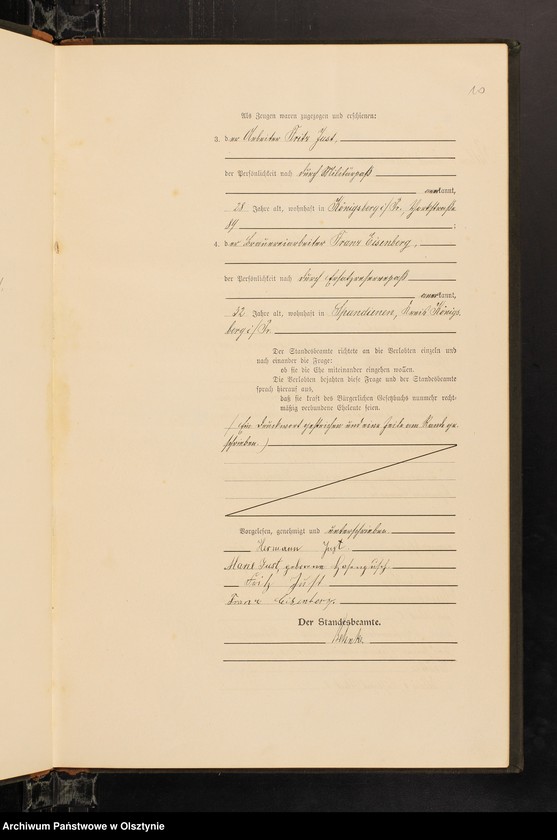 10
Als Zeugen waren zugezogen und erschienen:
3. der Arbeiter Fritz Just,
der Persönlichkeit nach durch Militärpaß
anerkannt,
28 Jahre alt, wohnhaft in Königsberg i/Pr., Yorkstraße
89 ;
4. der Brauereiarbeiter Franz Eisenberg,
der Persönlichkeit nach durch Ersatzreservepaß
anerkannt,
32 Jahre alt, wohnhaft in Spandienen, Kreis Königs-
berg i/Pr.
Der Standesbeamte richtete an die Verlobten einzeln und
nach einander die Frage:
ob sie die Ehe miteinander eingehen wollen.
Die Verlobten bejahten diese Frage und der Standesbeamte
sprach hierauf aus,
daß sie kraft des Bürgerlichen Gesetzbuchs nunmehr recht-
mäßig verbundene Eheleute seien.
(Ein Druckwort gestrichen und eine Zeile am Rande ge-
schrieben.)
Vorgelesen, genehmigt und unterschrieben
Hermann Just
Just, geborene
Fritz Just
Franz Eisenberg.
Der Standesbeamte.
Archiwum Państwowe w Olsztynie